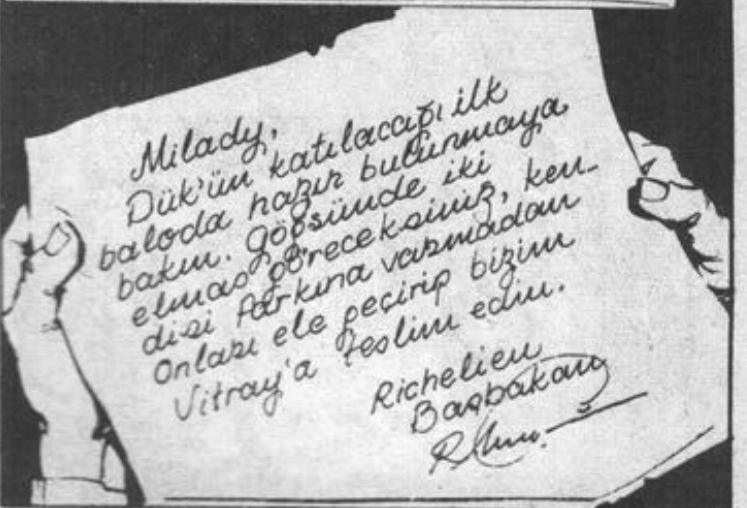 Milady,
Dük'ün katılacağı ilk
baloda hazır bulunmaya
bakın. Göğsünde iki
elmas göreceksiniz, ken-
disi farkına varmadan
Onları ele geçirip bizim
Vitray'a teslim edin.
Richelieu
Başbakan